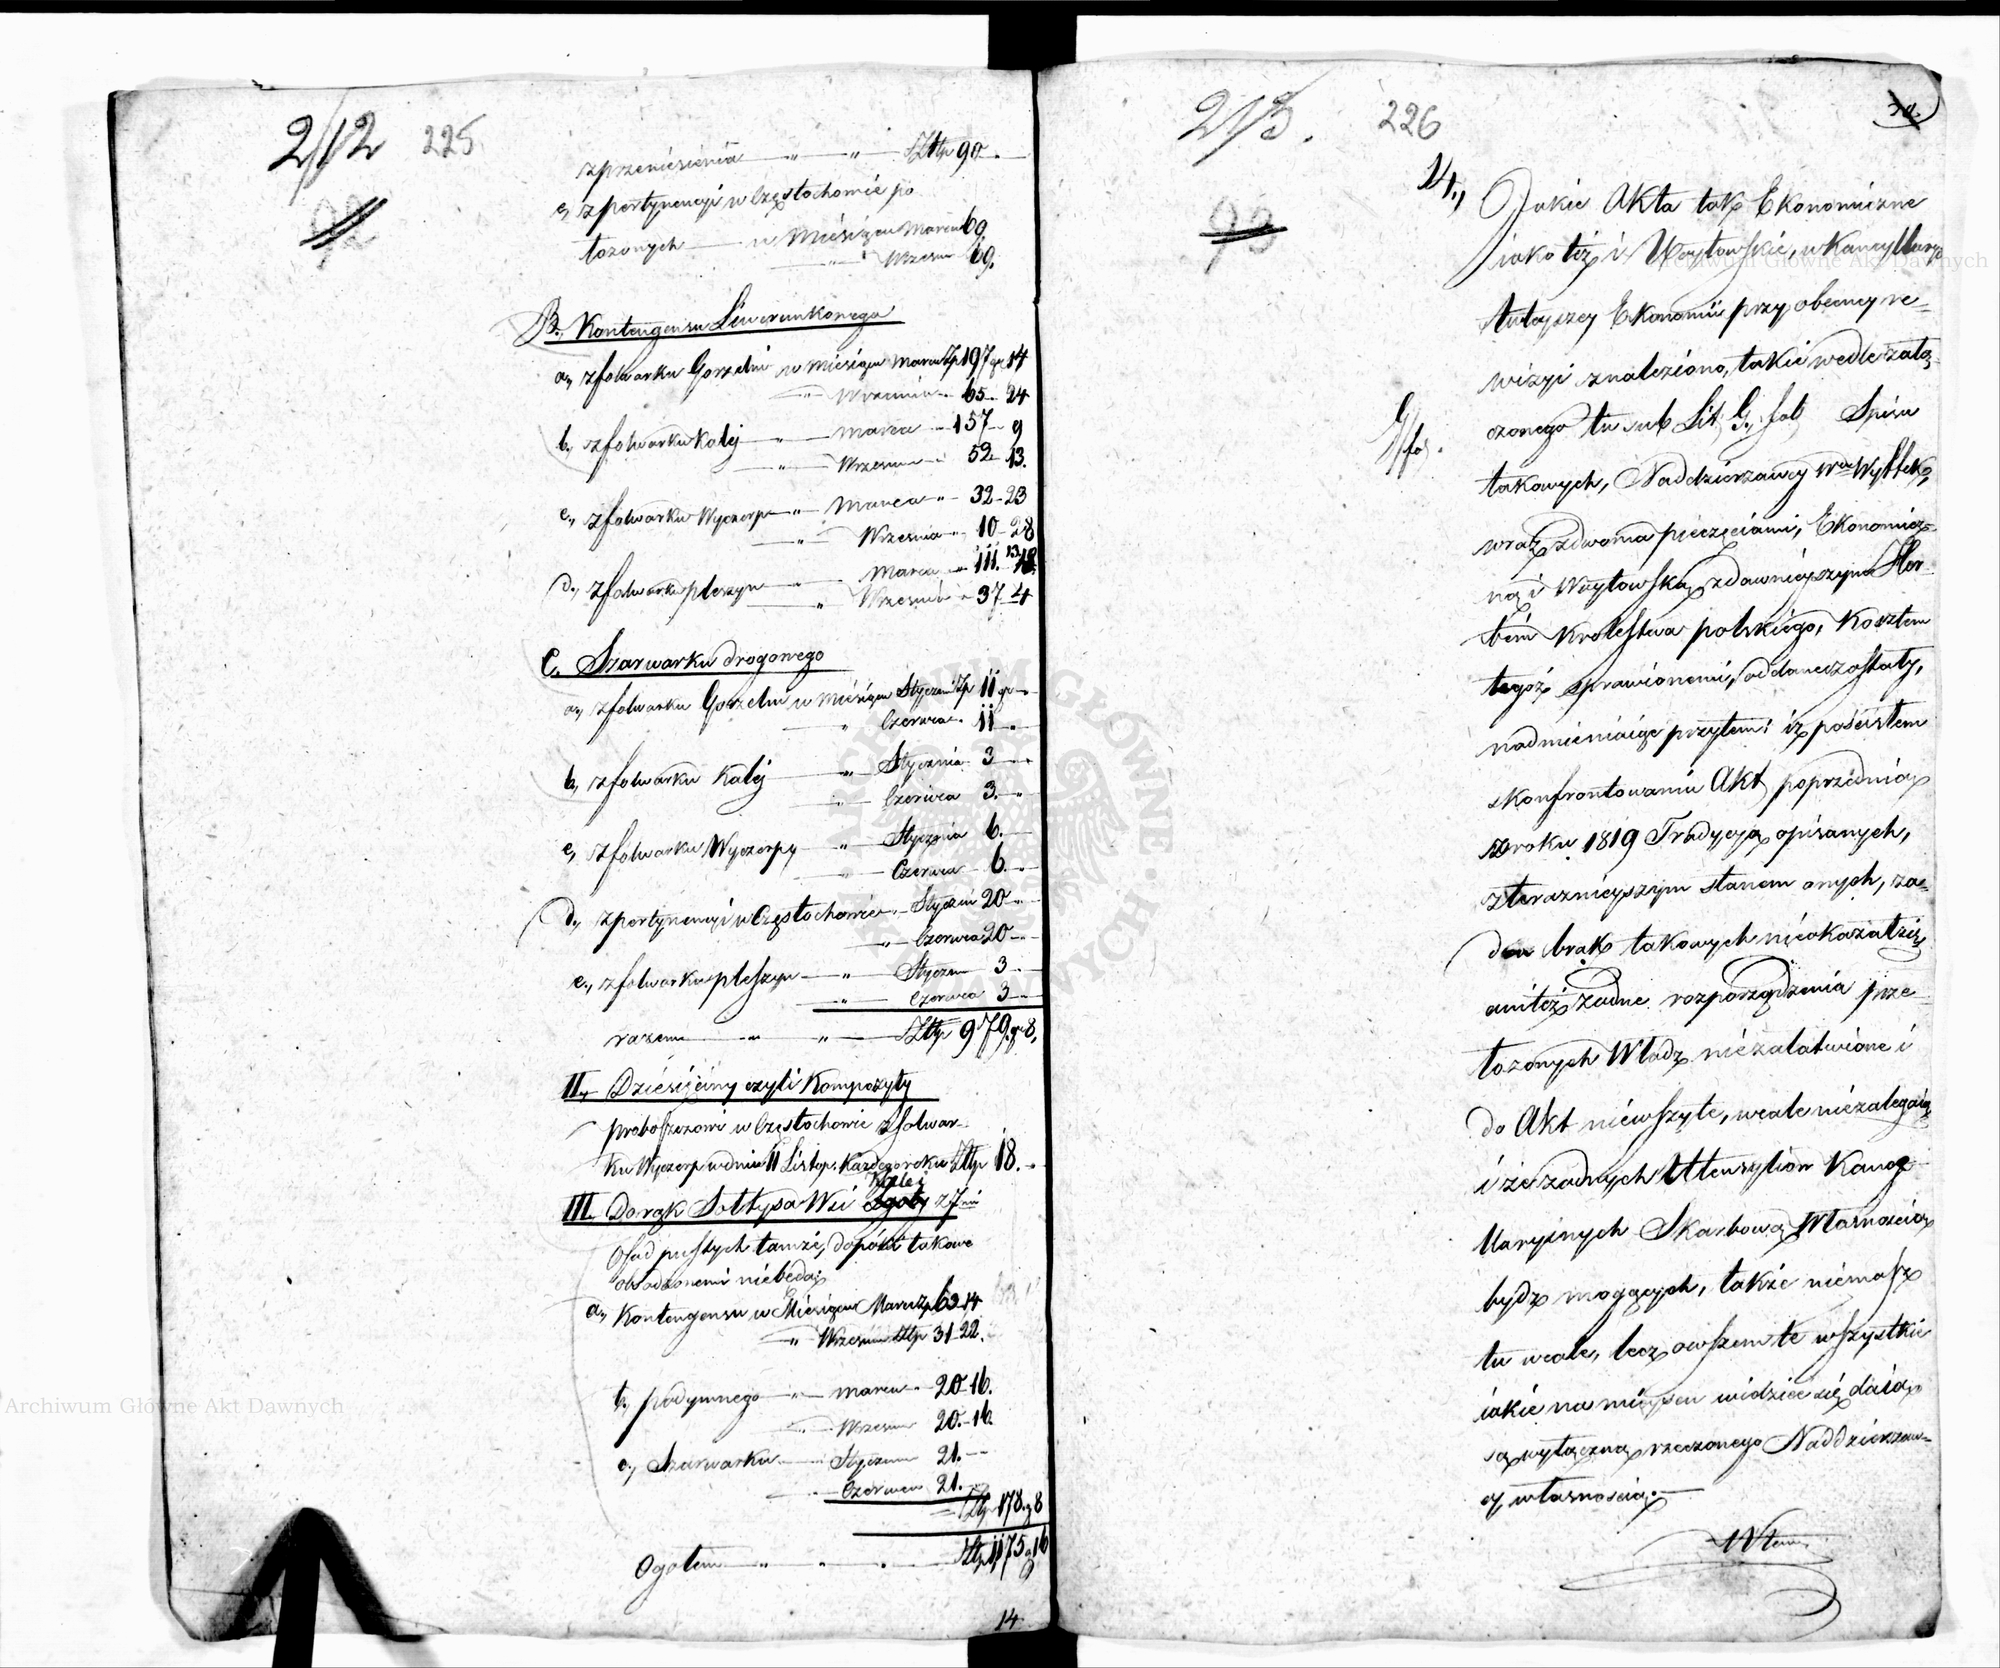 2/12 225
z przeniesienia „ „ Złłp 90.
e, z pertynencyi w Częstochowie po
łożonych w Miesiącu Marcu 69.
„ Wrześn 69.
B., Kontengensu Liwerunkowego
a., z folwarku Gorzelni w Miesiącu Marcu Zp 197 gr 14
„ Września 65 24
b., z folwarku Kaley „ Marca 157 9
„ Wrzesnia 52 13.
c., z folwarku Wyczerp „ Marca „ 32 23
„ Września „ 10 28
d., z folwarku pleszyn „ Marca „ 111.
„ Wrzesnia „ 37 4
C. Szarwarku drogowego
a., z folwarku Gorzelni w Miesiącu Styczniu Zp 11 gr
„ Czerwca. 11 „
b., z folwarku Kaley „ Stycznia 3
„ Czerwca 3. „
c, z folwarku Wyczerpy „ Stycznia 6.
„ Czerwca 6. „
d., z pertynencyi w Częstochowie „ Styczniu 20
„ Czerwca 20
e., z folwarku pleszyn „ Styczniu 3
„ Czerwca 3
razem „ „ Złłp 979. gr 8.
II., Dziesięciny czyli Kompozyty
proboszczowi w Częstochowie z folwar-
ku Wyczerp w dniu 11 Listop. każdego roku Złłp 18.
Kalei
III. Do rąk Sołtysa Wsi z 7miu
Osad pustych tamże, dopóki takowe
obsadzonemi niebędą;
a., Kontengensu w Miesiącu Marcu Zp 63 14
„ Wrzesniu Złłp 31 22.
b., podymnego „ marca 20 16.
Wrzesnia 20. 16.
c., Szarwarku Stycznia 21.
Czerwca 21.
Złłp 178. g 8
Ogołem „ „ „ Złłp 1175 g 16
14
213. 226
14., Jakie Akta tak Ekonomiczne
iako też i Woytowskie, w Kancyllaryi
tutayszey Ekonomii przy obecney re-
wizyi znaleziono, takie wedle załą-
G/fol. czonego tu sub Lit G., fol Spisu
takowych, Naddzierzawcy Wmu
wraz z dwoma pieczęciami, Ekonomicz-
ną i Woytowską z dawnieyszym Her-
bem Krolestwa polskiego, Kosztem
tegoż sprawionemi, oddane zostały,
nadmieniaiąc przytem: iż po ścisłem
skonfrontowaniu Akt poprzednią
z roku 1819 Tradycyą opisanych,
z teraznieyszym stanem onych, ża-
den brak takowych nieokazał się,
ani też żadne rozporządzenia prze-
łożonych Władz niezałatwione i
do Akt niewszyte, wcale niezalegaią
i że żadnych Utensyliow Kance-
llaryinych Skarbową Własnością
bydź mogących, także niemasz
tu wcale, lecz owszem te wszystkie
iakie na mieyscu widzieć się daią,
są wyłączną rzeczonego Naddzierzaw-
cy własnością.
Archiwum Główne Akt Dawnych
Archiwum Główne Akt Dawnych